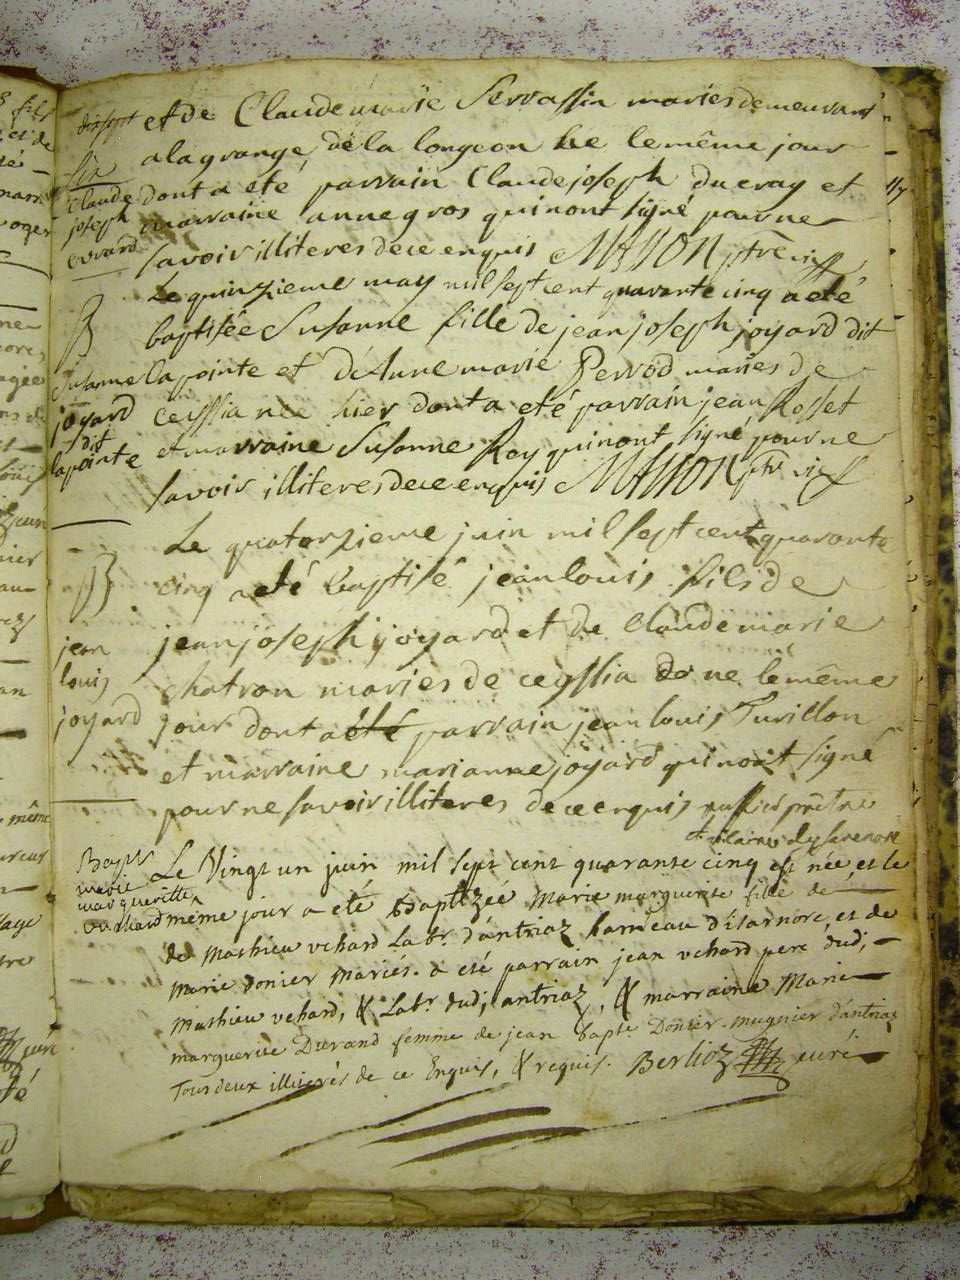 et de Claude marie Servassin mariés demeurant
a la grange de la longeon né le même jour
Claude
joseph
evrard
dont a eté parrain Claude joseph ducray et
marraine anne gros qui nont signé pour ne
savoir illiteres de ce enquis MASSON ptre vic
Le quinzieme may mil sept cent quarante cinq a eté
B
baptisée Susanne fille de jean joseph joyard dit
Susanne
joyard
dit
lapointe
lapointe et d'Anne marie Perrod mariés de
ceissia née hier dont a eté parrain jean Rosset
et marraine Susanne Roy qui nont signé pour ne
savoir illiteres de ce enquis MASSON ptre vic
Le quatorzieme juin mil sept cent quarante
B
cinq a eté baptisé jean louis fils de
jean
louis
joyard
jean joseph joyard et de Claude marie
chatron mariés de ceyssia né le même
jour dont a eté parrain jean louis Turillon
et marraine marianne joyard qui nont signé
pour ne savoir illiteres de ce enquis
Bapt
marie
margueritte
vuchard
Le Vingt un juin mil sept cent quarante cinq est née, et le
même jour a eté baptizée Marie marguerite fille de
de Mathieu vchard Labr. d'antriaz hameau d'isarnore, et de
Marie donier Mariés. a eté parrain jean vchard pere dud;
Mathieu vchard, & Labr. dud; antriaz, & marraine Marie
marguerite Durand femme de jean bapte. Donier mugnier d'antriaz
Tous deux illiterés de ce Enquis, & requis. Berlioz curé